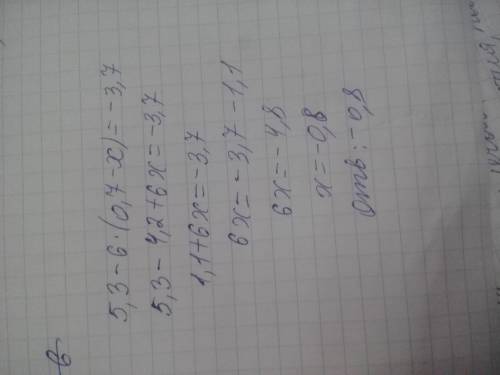 б
5,3-6·(0,7-x)=-3,7
5,3-4,2+6x=-3,7
1,1+6x=-3,7
6x=-3,7-1,1
6x=-4,8
x=-0,8
Отв: -0,8